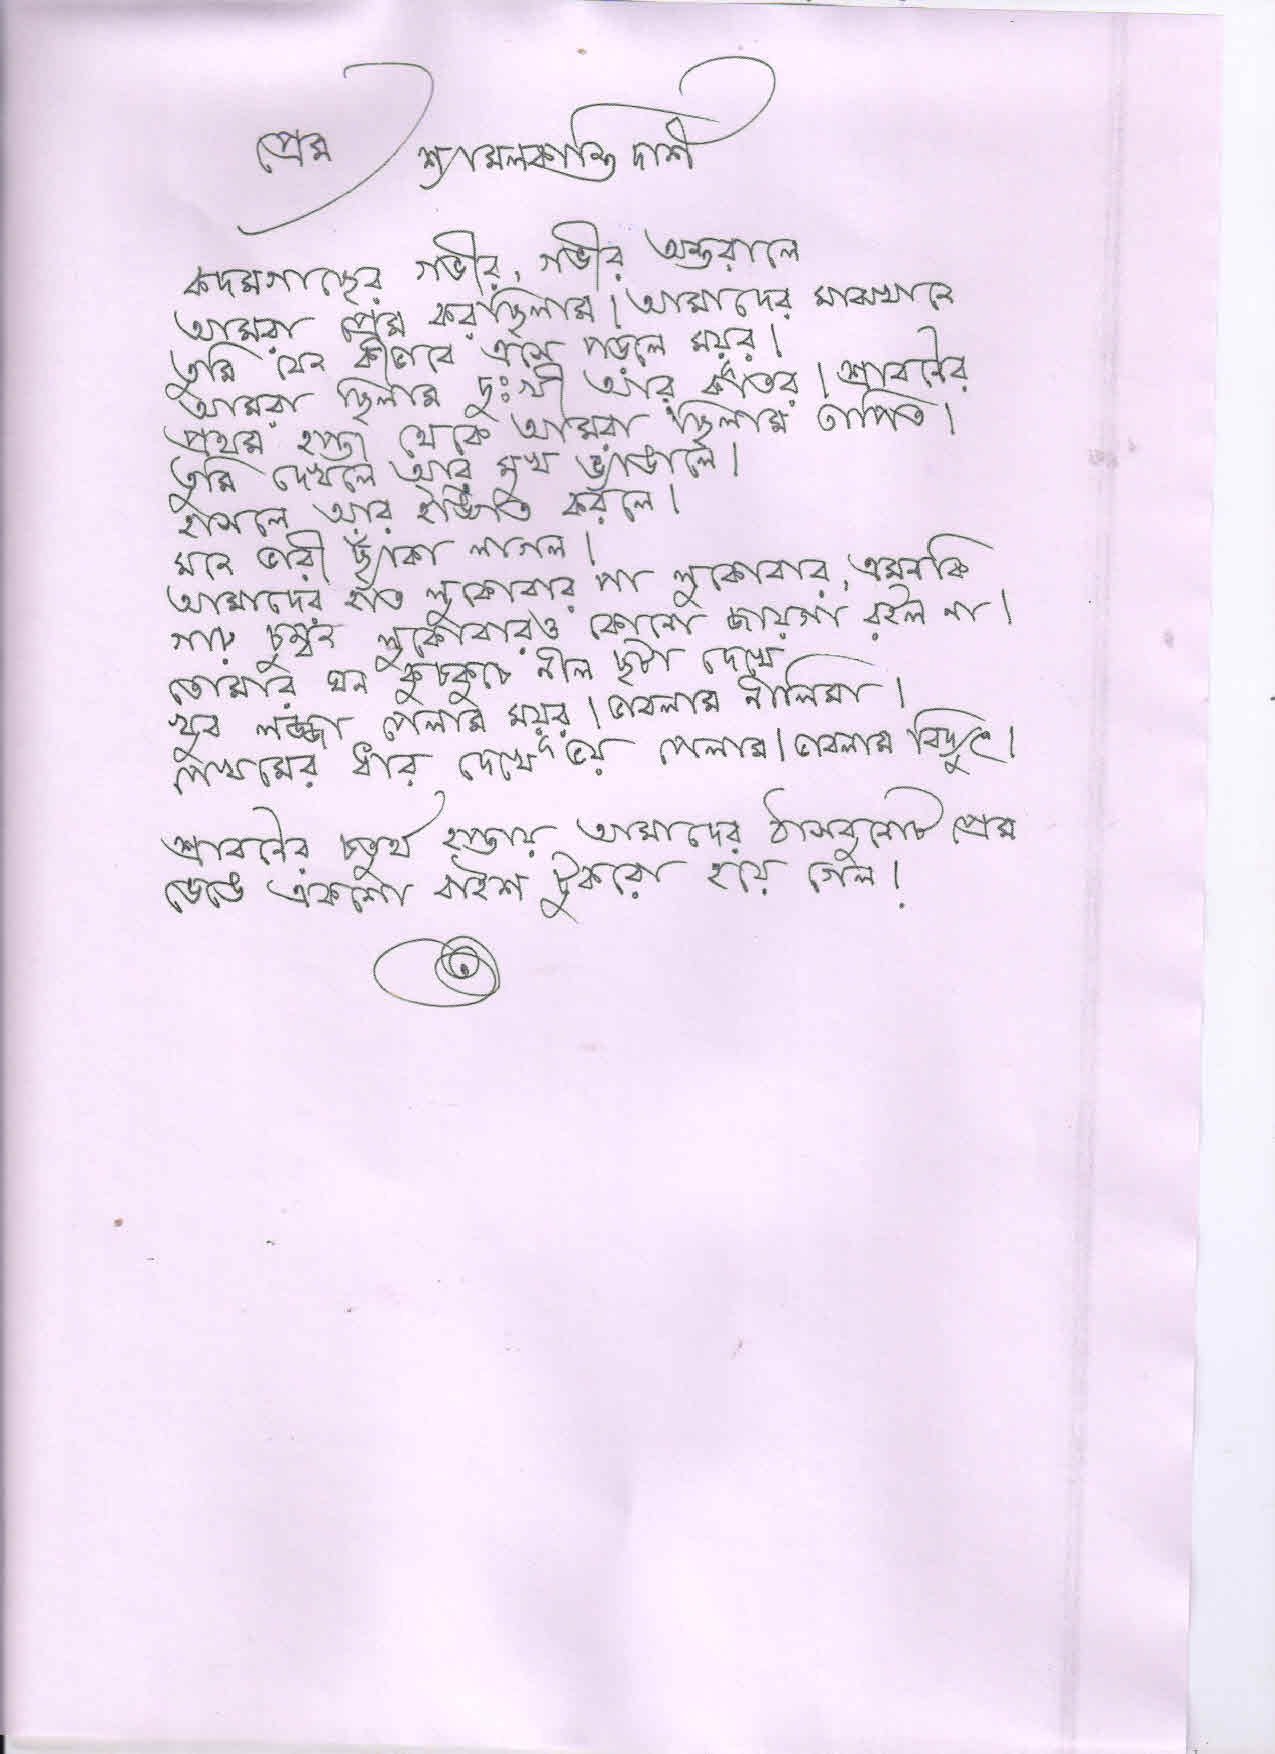 প্রেম শ্যামলকান্তি দাশ
কদমগাছের গভীর, গভীর অন্তরালে
আমরা প্রেম করছিলাম। আমাদের মাঝখানে
তুমি যেন কীভাবে এসে পড়লে ময়ূর।
আমরা ছিলাম দুঃখী আর কাতর। শ্রাবণের
প্রথম হপ্তা থেকে আমরা ছিলাম তাপিত।
তুমি দেখলে আর মুখ ভ্যাঙালে।
হাসলে আর ইঙ্গিত করলে।
মনে ভারী ছ্যাঁকা লাগল।
আমাদের হাত লুকোবার পা লুকোবার, এমনকি
গাঢ় চুম্বন লুকোবারও কোনো জায়গা রইল না।
তোমার ঘন কুচকুচে নীল ছটা দেখে
খুব লজ্জা পেলাম ময়ূর। ভাবলাম নীলিমা।
পেখমের ধার দেখে ভয় পেলাম। ভাবলাম বিদ্যুৎ।
শ্রাবণের চতুর্থ হপ্তায় আমাদের ঠাসবুনোট প্রেম
ভেঙে একশো বাইশ টুকরো হয়ে গেল।